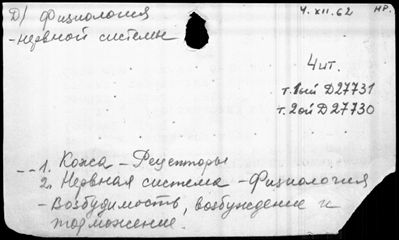 Д/ физиология 4.XII.62 НР.
-нервной системы
Чит.
т.1ый Д27731
т.2ой Д27730
-- 1. Кожа - Рецепторы
2. Нервная система - Физиология
- Возбудимость, возбуждение и
торможение.